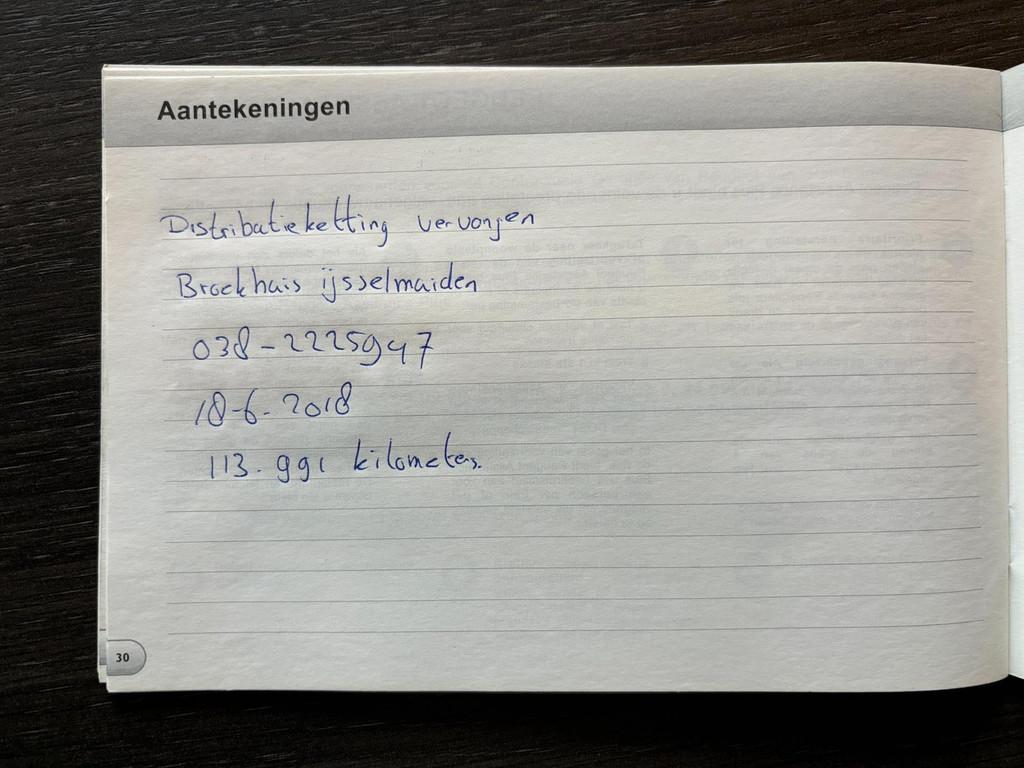 Aantekeningen
Distributieketting vervangen
Broekhuis ijsselmuiden
038-2225947
18-6-2018
113.991 kilometers.
30